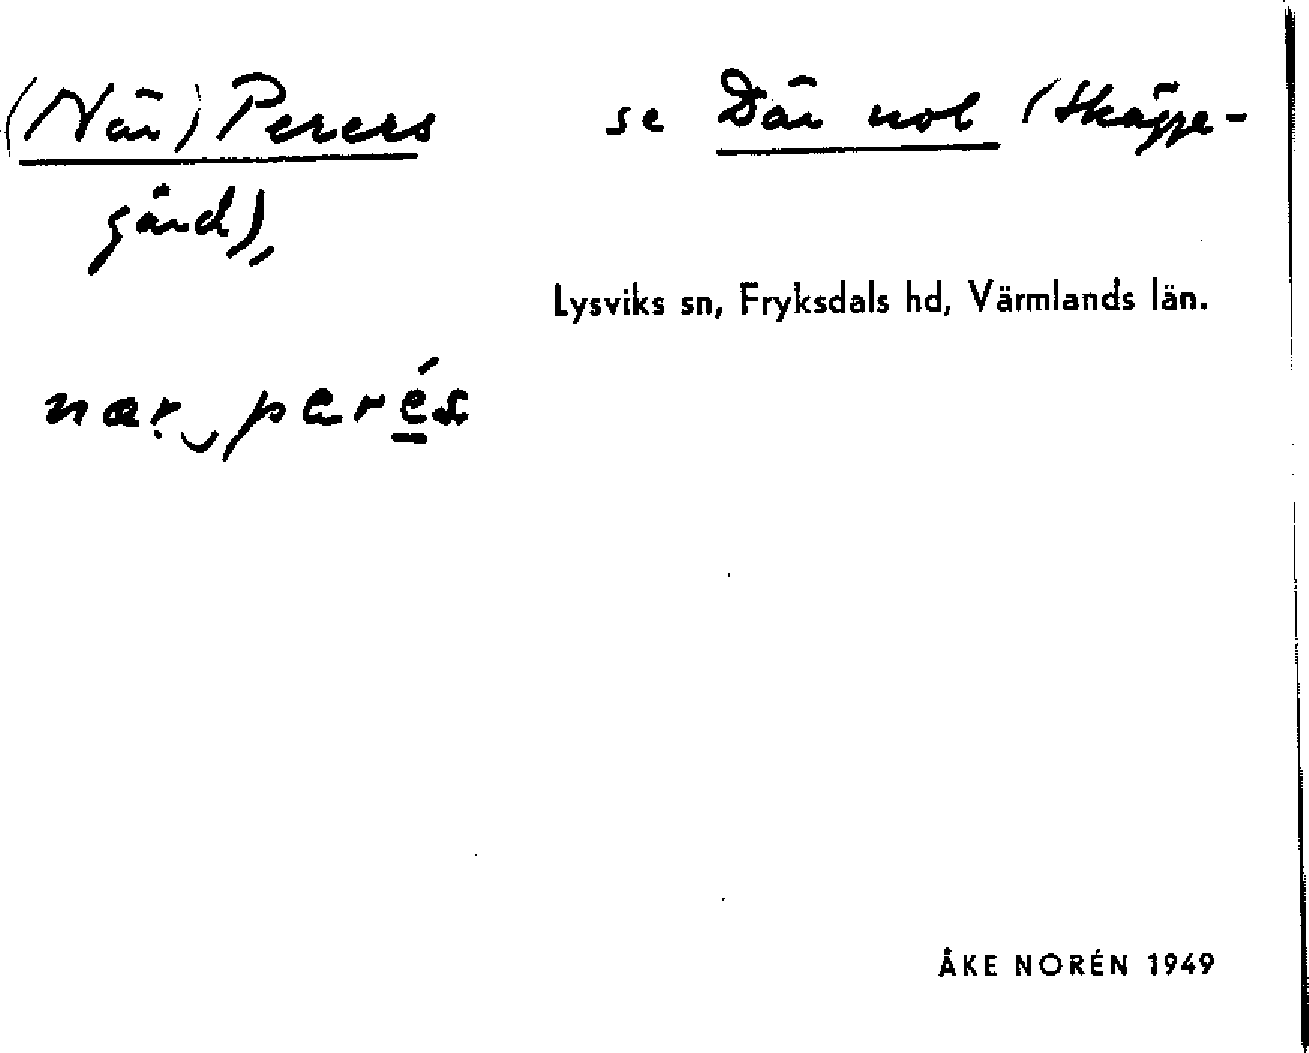 (När) Perers se Där nol (Skäppe-
gård),
Lysviks sn, Fryksdals hd, Värmlands län.
nær‿perés
ÅKE NORÉN 1949